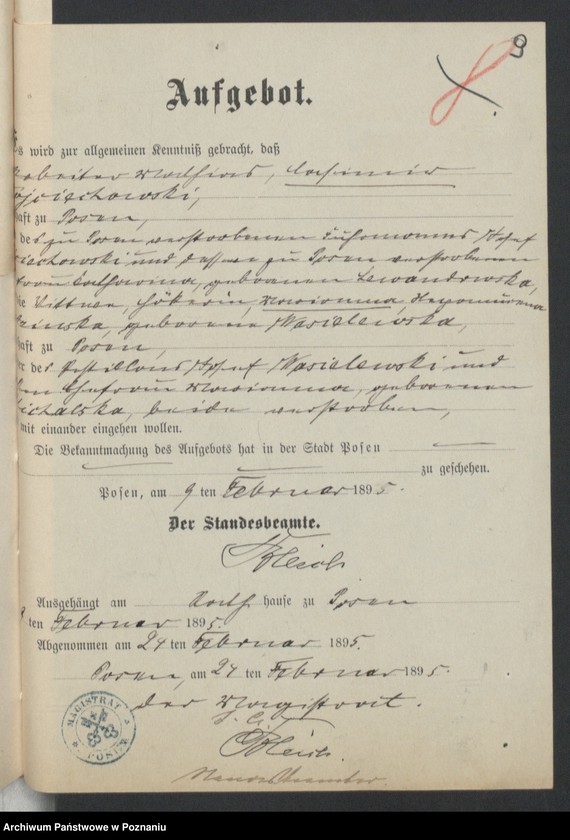 9
Aufgebot.
s wird zur allgemeinen Kenntniß gebracht, daß
arbeiter Mathias, Casimir
ojciechowski,
haft zu Posen,
des zu Posen verstorbenen Fuhrmanns Josef
iechowski und dessen zu Posen verstorbenen
frau Katharina, geborenen Lewandowska,
ie Wittwe, Hökerin, Marianna,
geborene Wasielewska,
haft zu Posen,
er des Postillons Josef Wasielewski und
en Ehefrau Marianna, geborenen
ichalska, beide verstorben,
mit einander eingehen wollen.
Die Bekanntmachung des Aufgebots hat in der Stadt Posen
zu geschehen.
Posen, am 9 ten Februar 1895.
Der Standesbeamte.
Ausgehängt am Rath hause zu Posen
ten Februar 1895.
Abgenommen am 24 ten Februar 1895.
Posen, am 24 ten Februar 1895.
Der Magistrat.
MAGISTRAT
POSEN
Archiwum Państwowe w Poznaniu